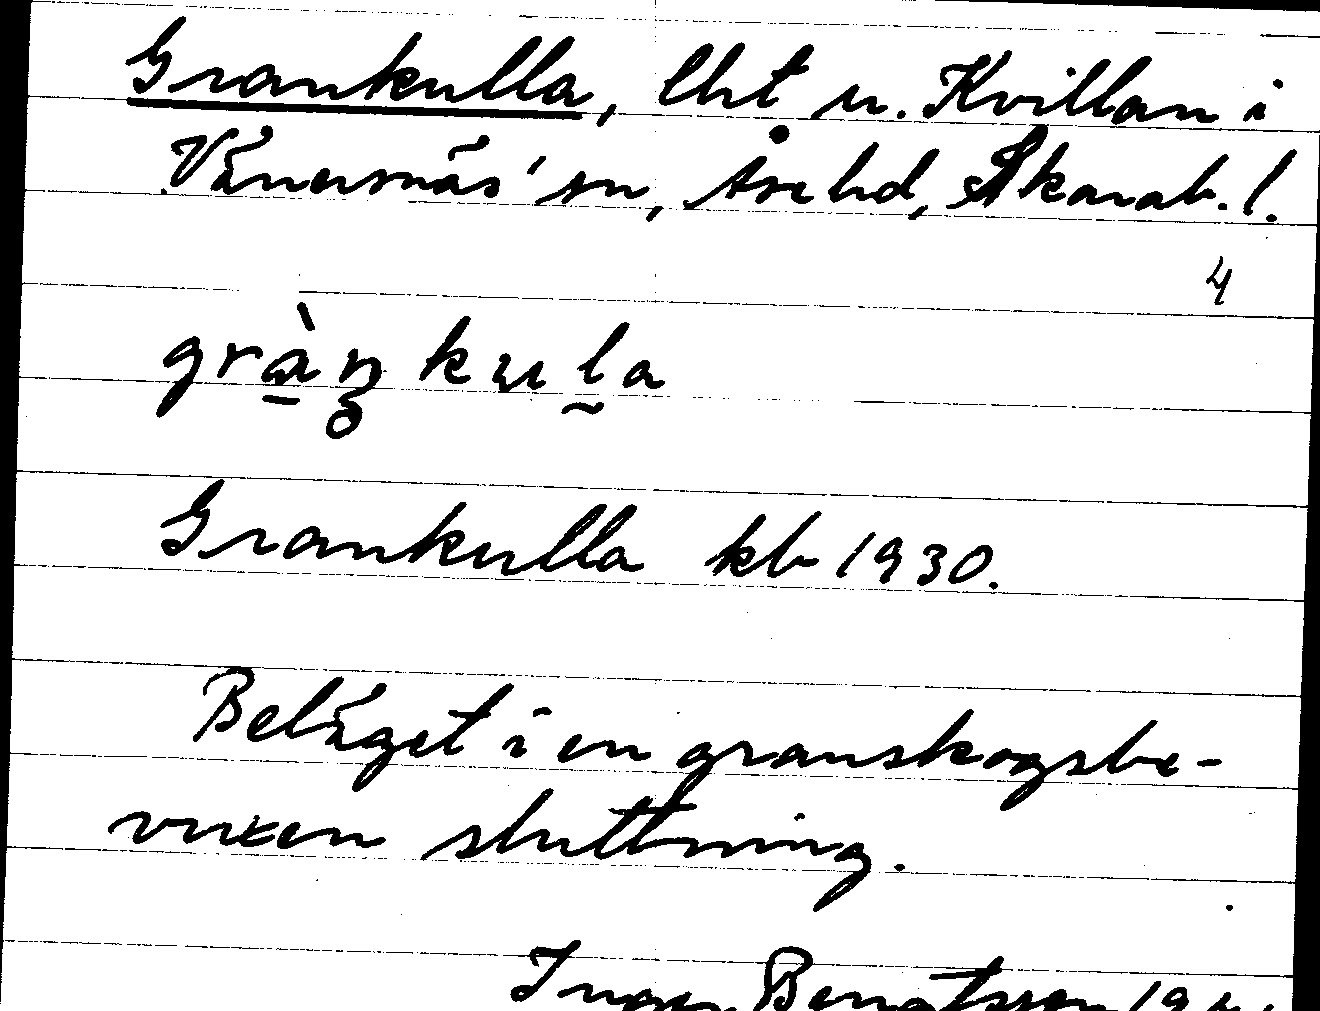 Grankulla, lht u. Kvillan i
Vänersnäs' sn, Åse hd, Skarab. l.
4
gràŋkula
Grankulla kb 1930.
Beläget i en granskogsbe-
vuxen sluttning.
Bengtsson